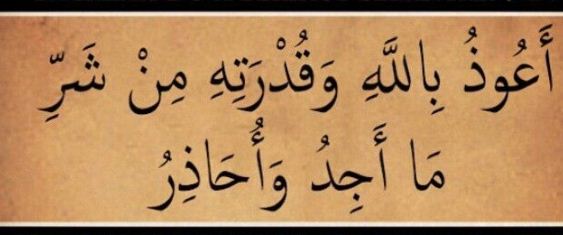 أَعُوذُ بِاللَّهِ وَقُدْرَتِهِ مِنْ شَرِّ
مَا أَجِدُ وَأُحَاذِرُ